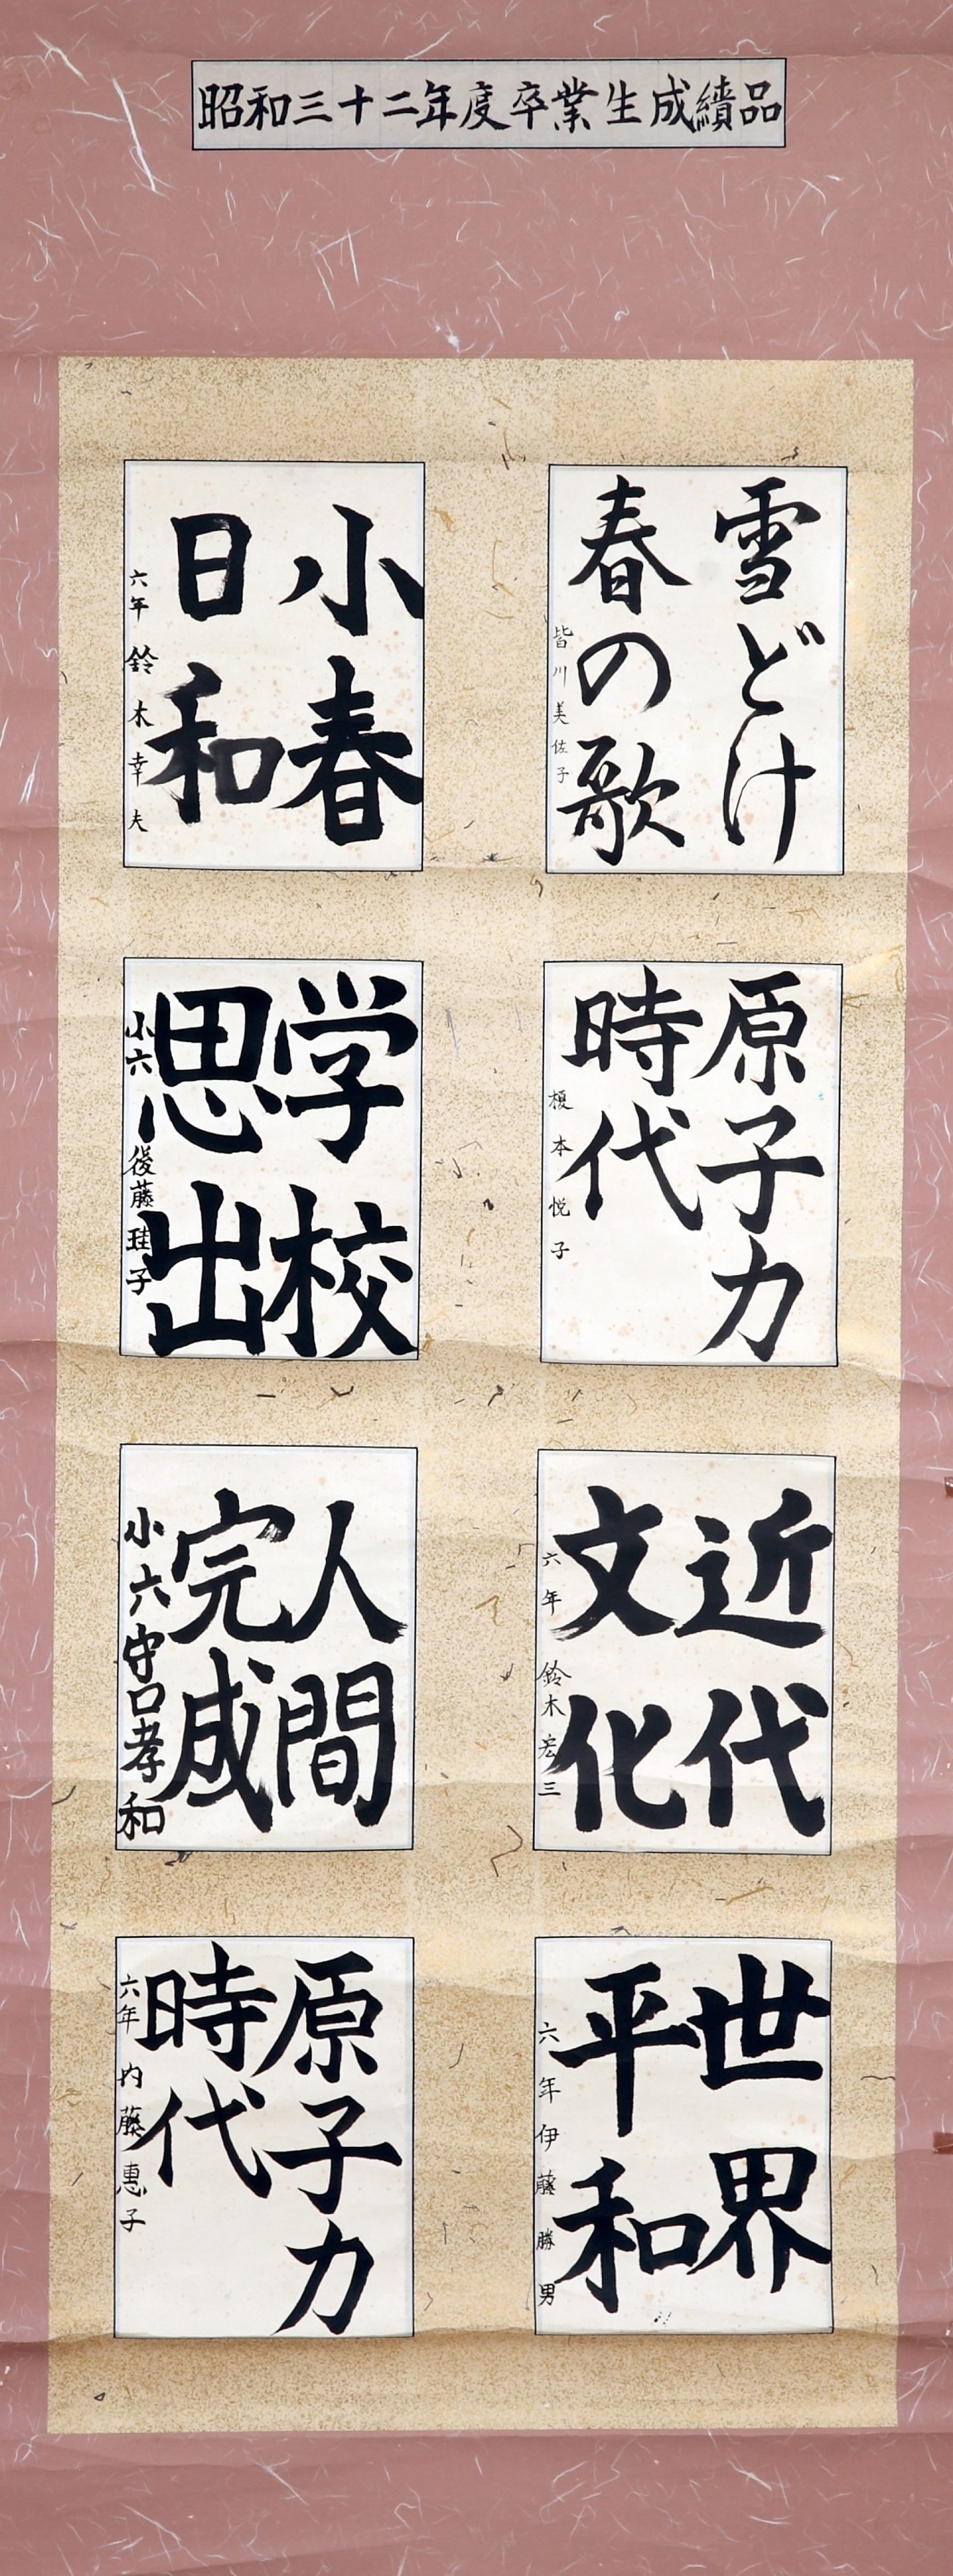 昭和三十二年度卒業生成績品
雪どけ
春の歌
皆川美佐子
小春
日和
六年 鈴木幸夫
原子力
時代
榎本悦子
学校
思出
小六 後藤珪子
近代
文化
六年 鈴木宏三
人間
完成
小六 守口孝和
世界
平和
六年 伊藤勝男
原子力
時代
六年 内藤惠子